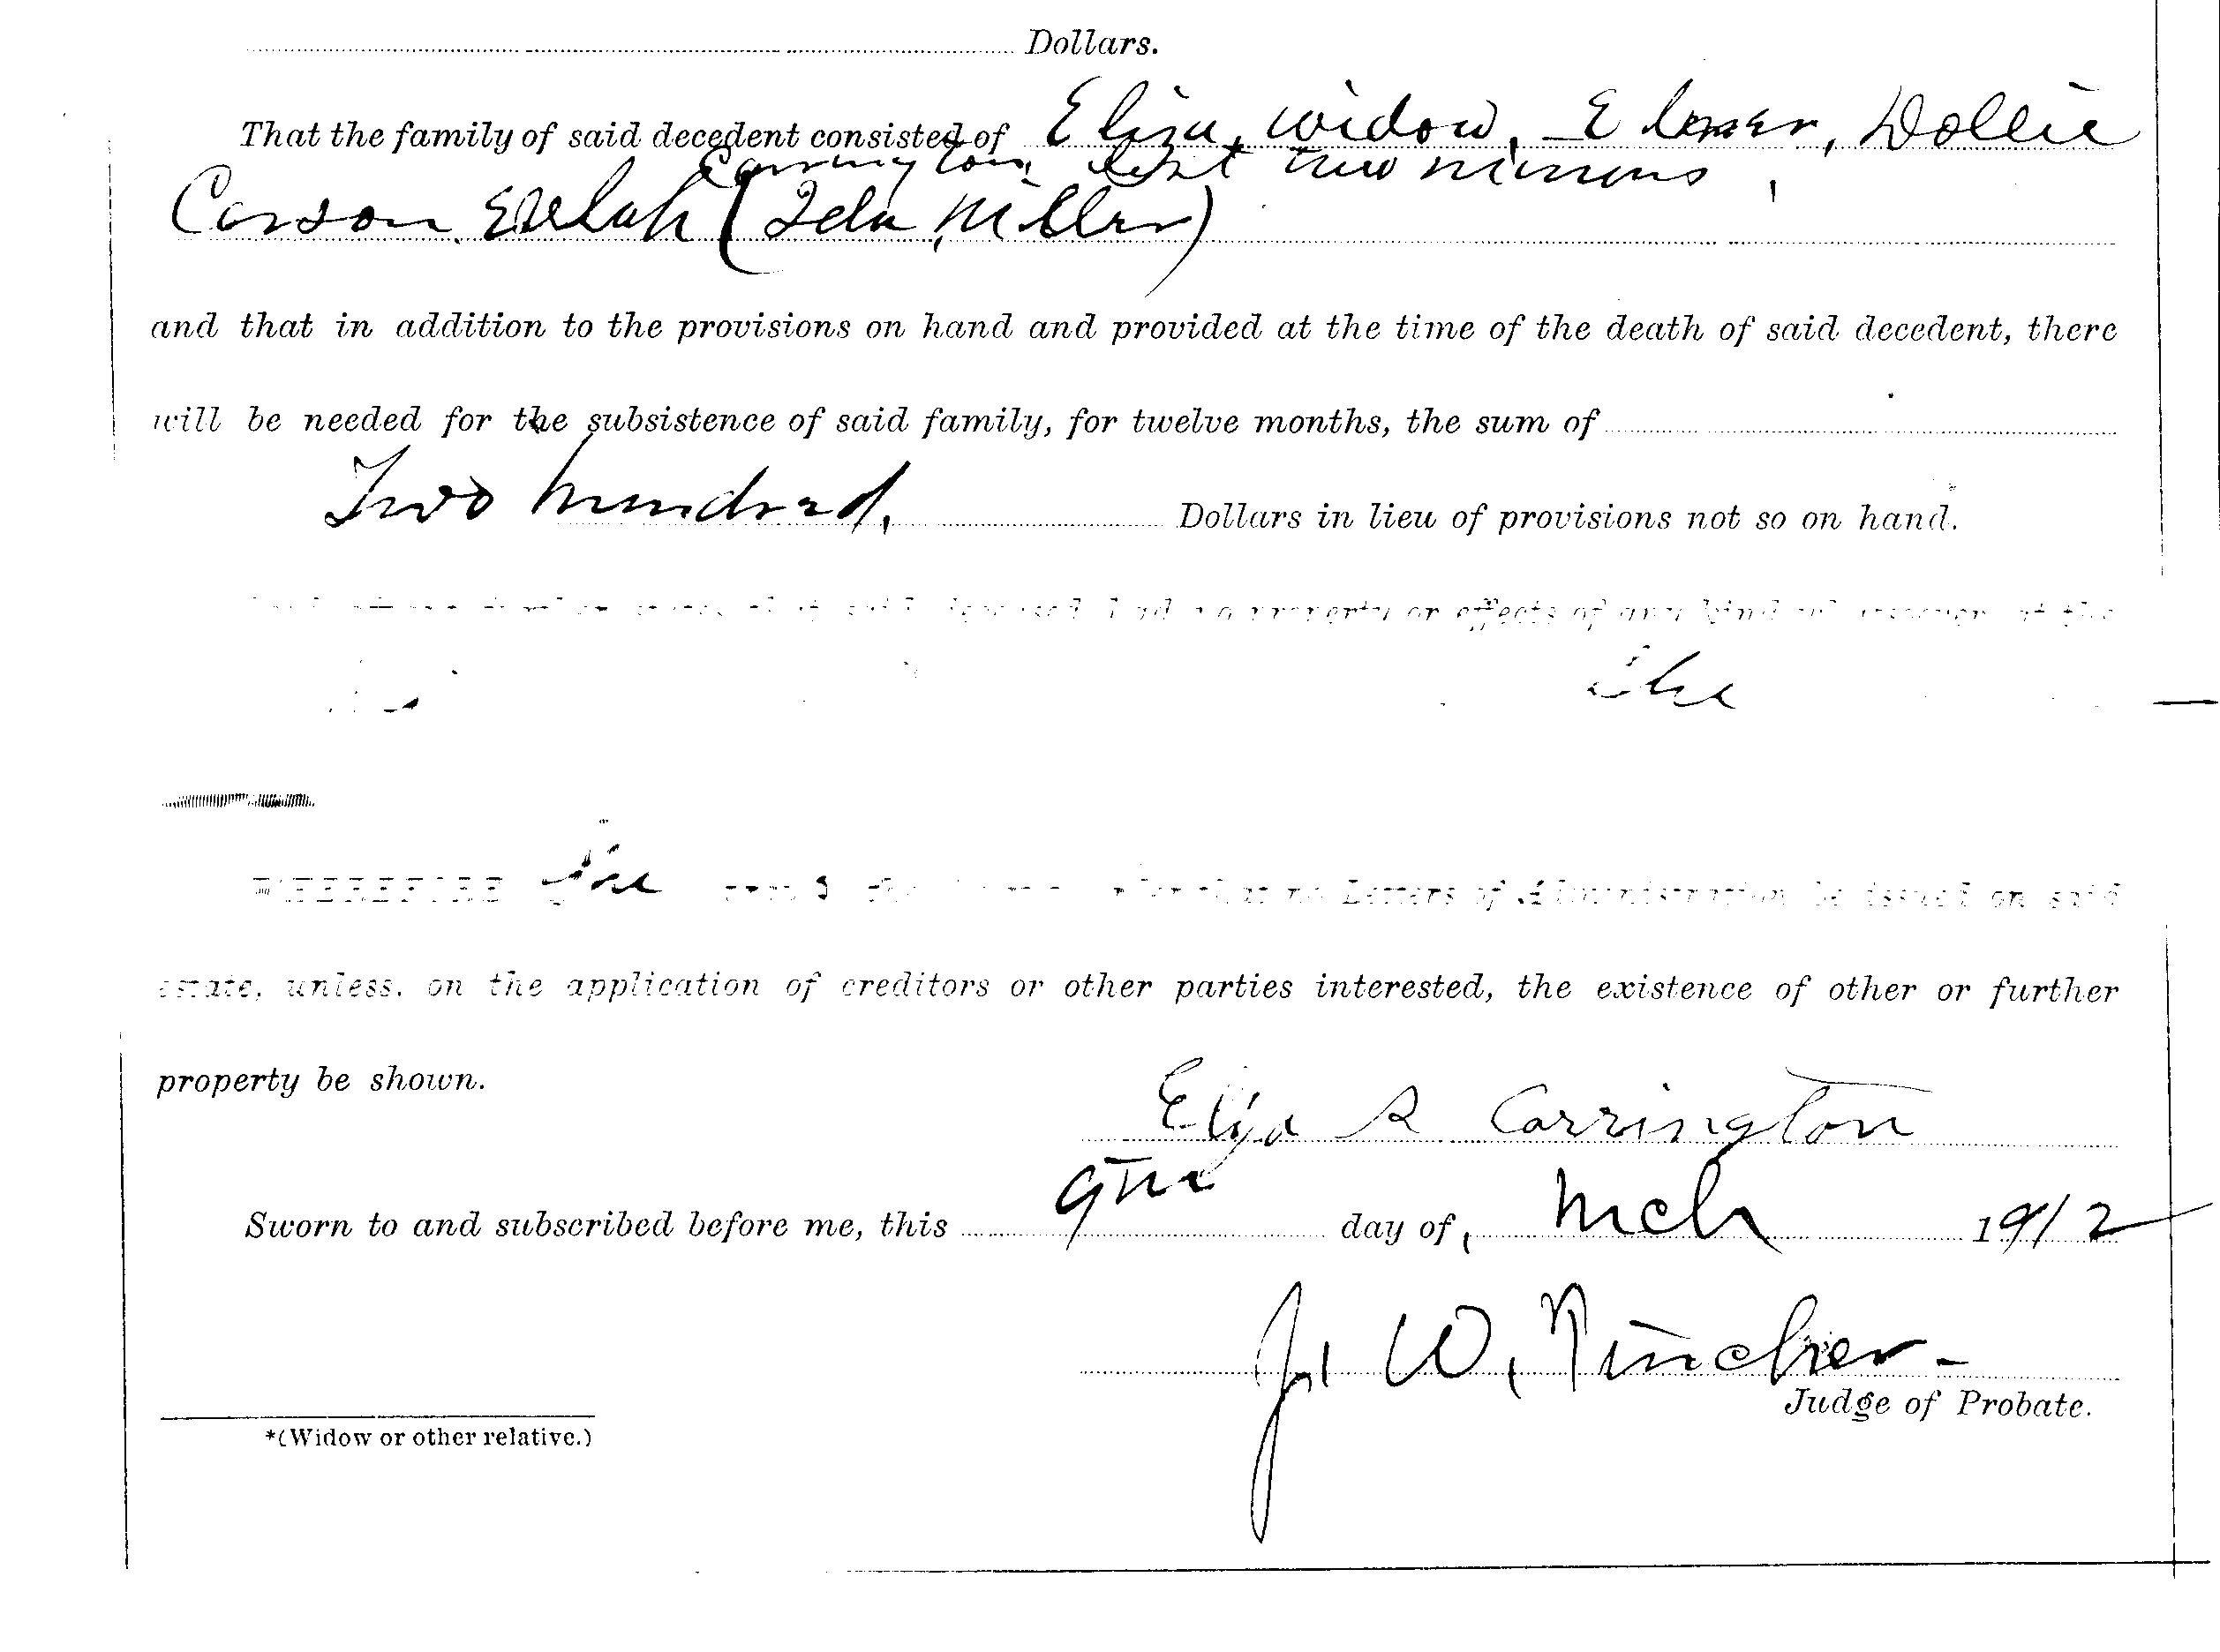 Dollars.
That the family of said decedent consisted of Eliza, widow, Elmer, Dollie
Carrington, last two minors,
Carson, Eulah (Ida Miller)
and that in addition to the provisions on hand and provided at the time of the death of said decedent, there
will be needed for the subsistence of said family, for twelve months, the sum of
Two hundred, Dollars in lieu of provisions not so on hand.
property or effects of any kind
she
WHEREFORE she that no Letters of Administration be issued on said
estate, unless, on the application of creditors or other parties interested, the existence of other or further
property be shown.
Eliza R Carrington
Sworn to and subscribed before me, this 9th day of, Mch 1912
J. W. Pincher
Judge of Probate.
*(Widow or other relative.)